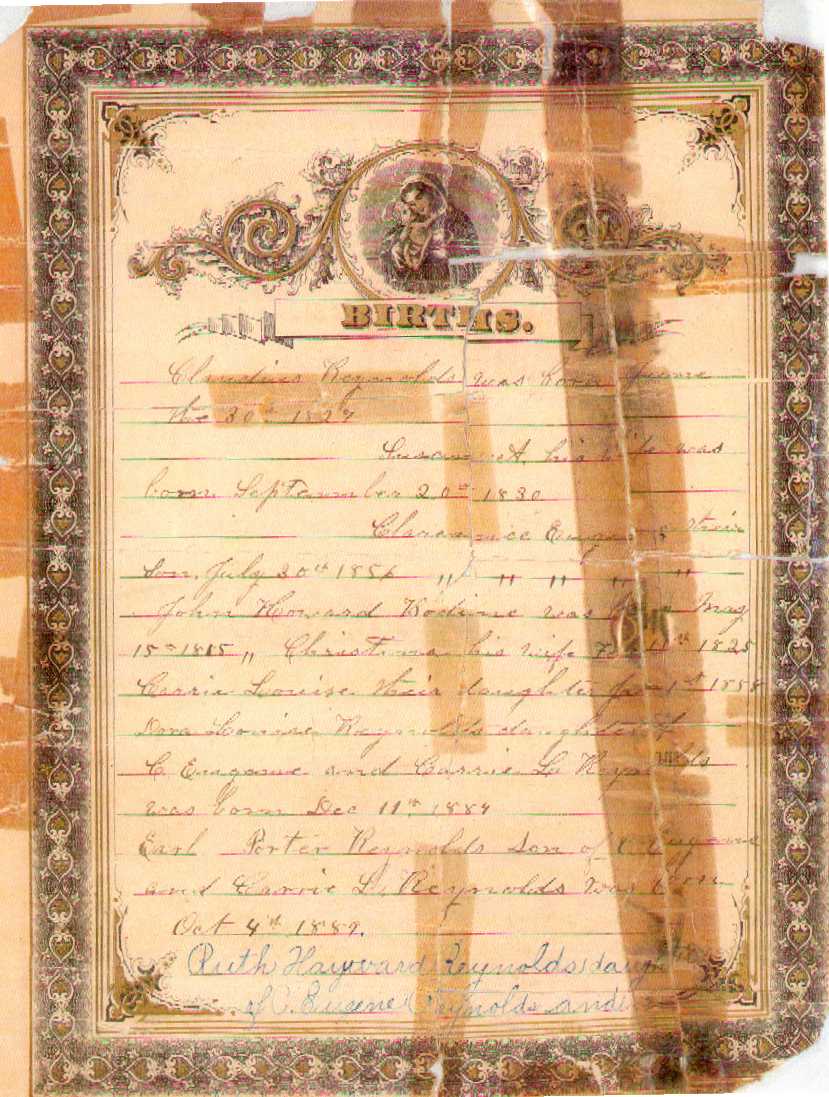 BIRTHS.
Claudius Reynolds was born June
the 30th 1827
Susan A. his wife was
born September 20th 1830
Clarence Eugene their
Son, July 30th 1856 " " " " "
John Howard Bodine was born May
15th 1815 " Christina his wife Feb 11th 1825
Carrie Louise their daughter Jan 1st 1858
Dora Louise Reynolds daughter of
C. Eugene and Carrie L. Reynolds
was born Dec 11th 1884
Earl Porter Reynolds Son of C. Eugene
and Carrie L. Reynolds was born
Oct 4th 1889.
Ruth Hayward Reynolds daugh
of C. Eugene Reynolds and